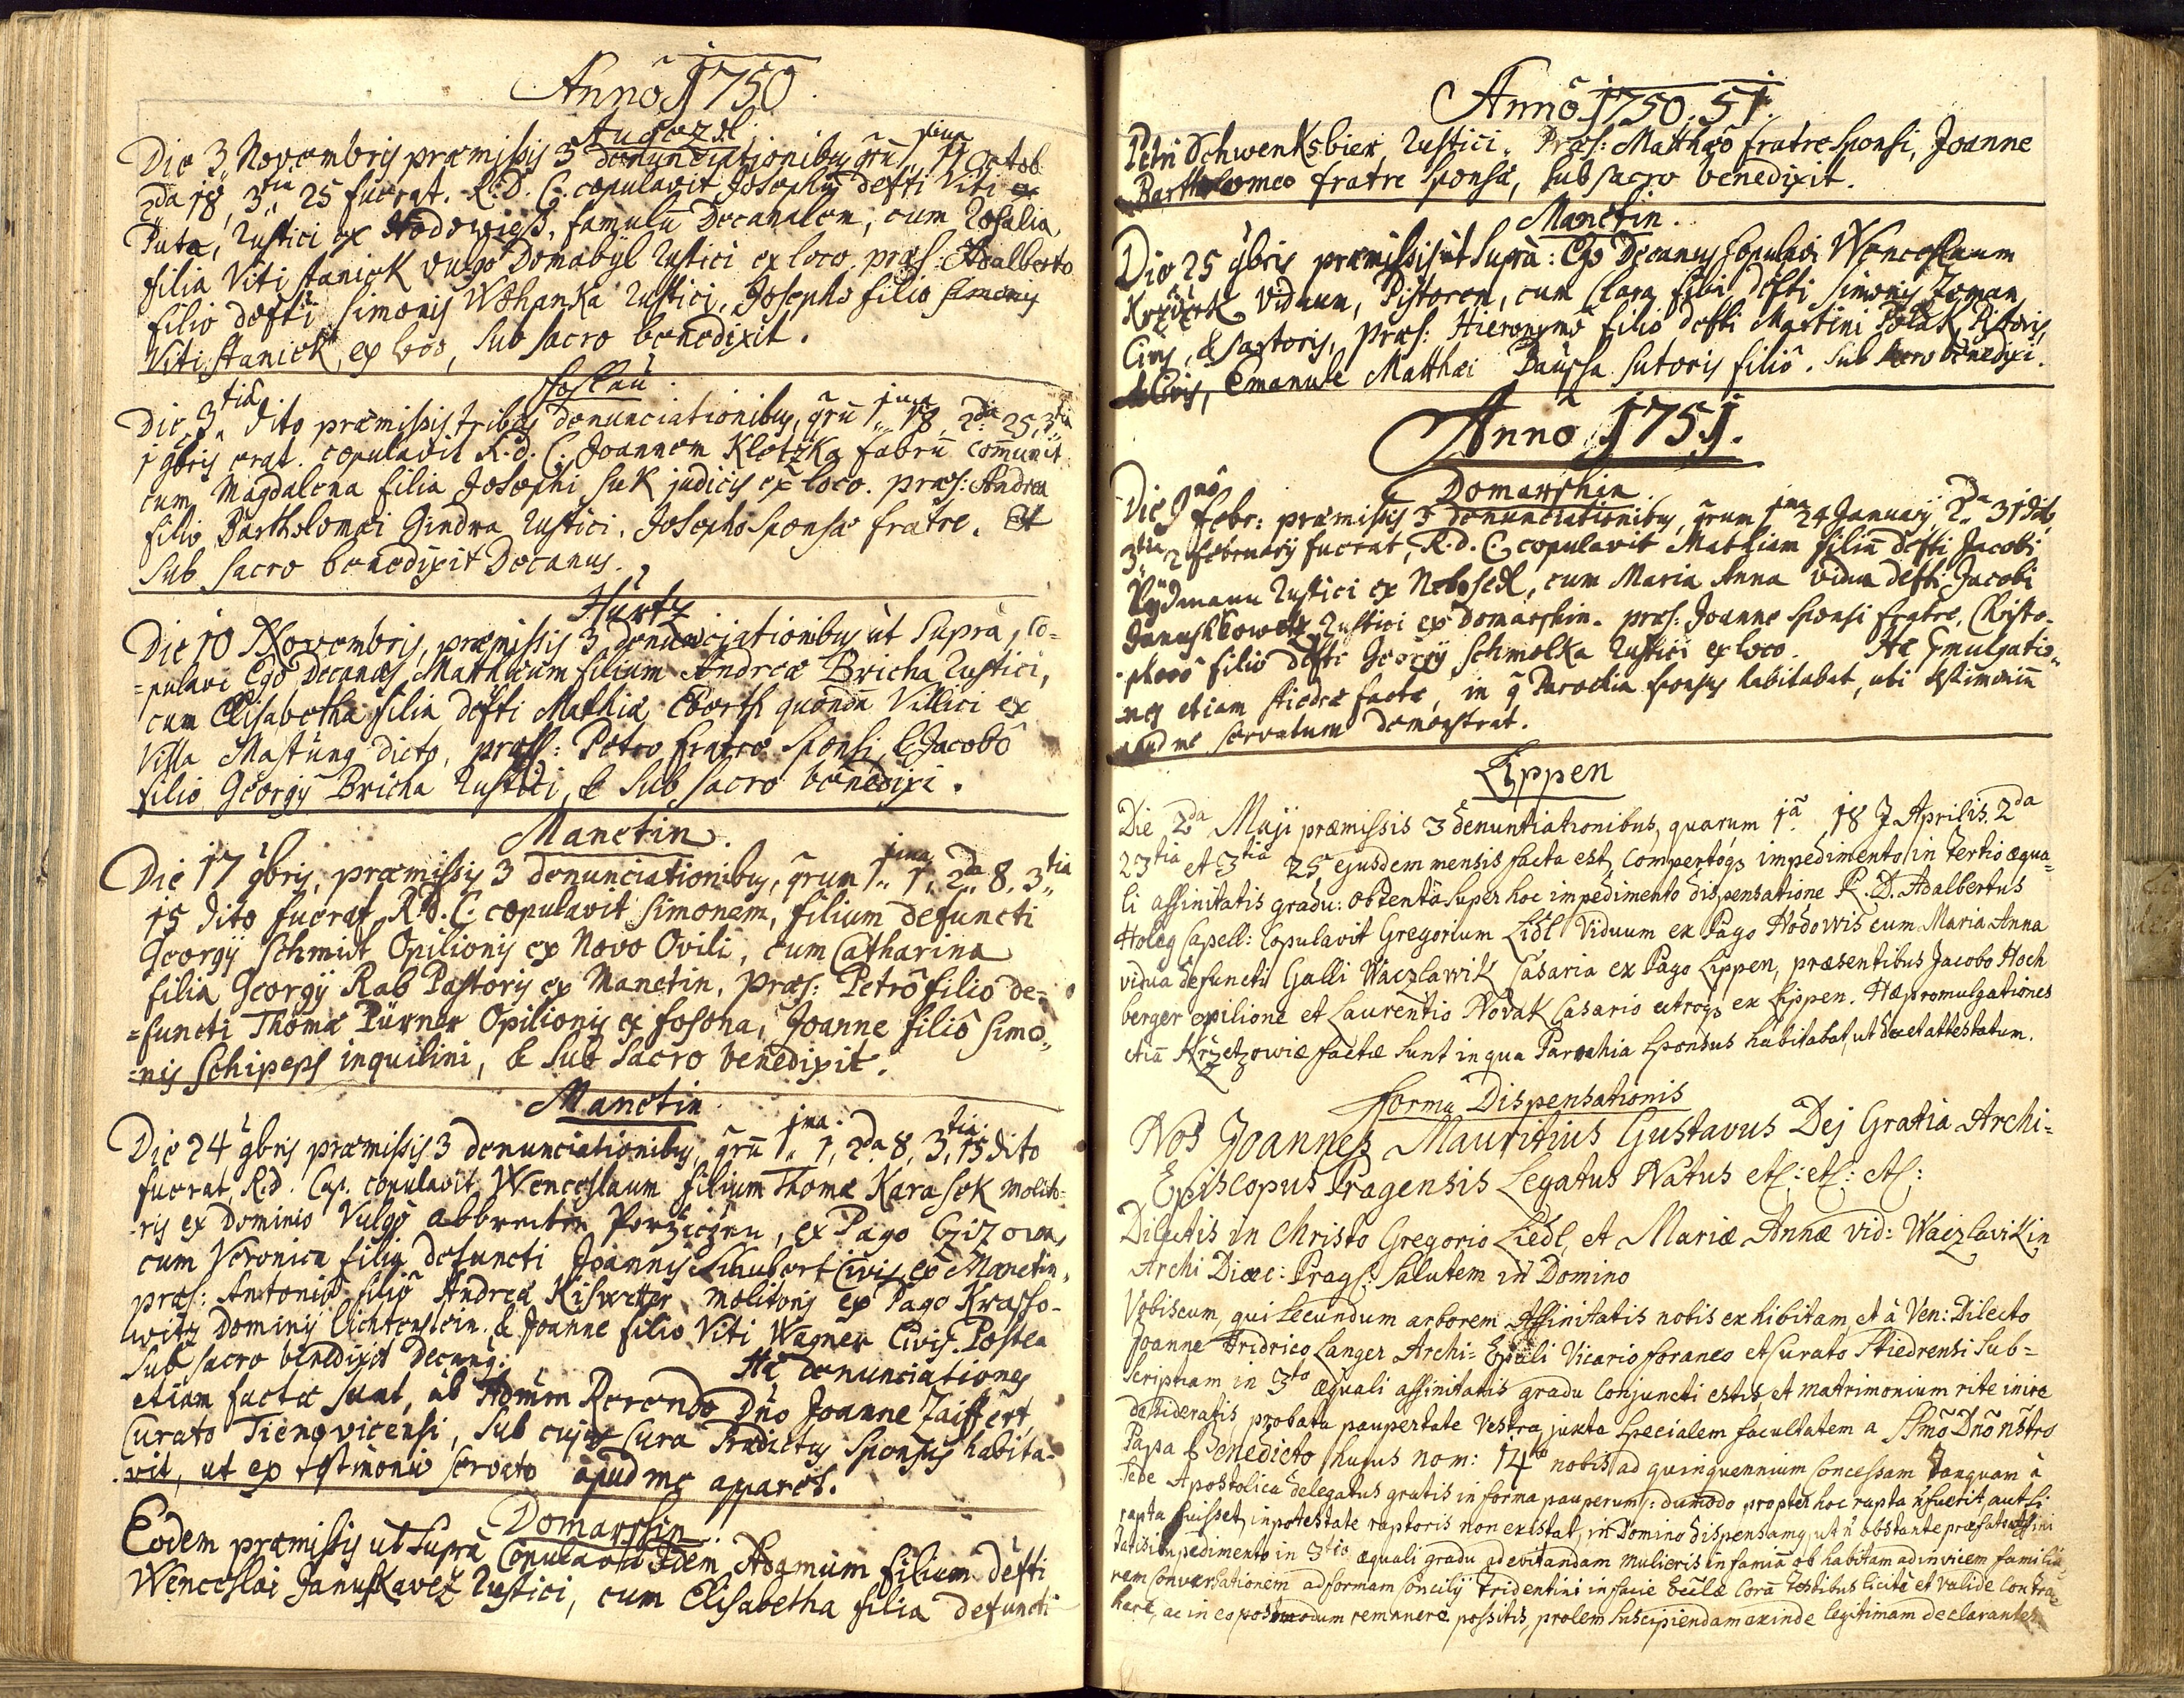 Anno 1750.
Augezdl
Die 3 Novembris præmissis 3 denunciationibus, qru 1 ima 11 Octob.
2da 18, 3tia 25 fuerat. R.D.C. copulavit Josephum defti Viti
Puta, Rustici ex Hodowiess, famulu Decanalem, cum Rosalia
filia Viti Staniek vulgo Domabyl Rustici ex loco, præs: Adalberto
filio defti Simonis Wohanka Rustici, Josepho filio Simonis
Viti Staniek, ex loco, sub sacro benedixit.
Die 3tia dito præmissis tribus denunciationibus, qru 1 ima 18, 2da 25, 3tia
1 9bris erat. copulavit R.d.C. Joannem Klotzka fabru communit
cum Magdalena filia Josephi Suk judicis ex loco. præs: Andrea
filio Bartholomæi Gindra Rustici, Josepho Sponsæ fratre. Et
sub sacro benedixit Decanus.
Hurtz
Die 10 Novembris, præmissis 3 denunciationibus ut supra, co=
=pulavi Ego Decanus, Matthæum filium Andreæ Bricha Rustici,
cum Elisabetha filia defti Mathiæ Eberth quondā Villici ex
Villa Mastung dicto, præs: Petro fratre Sponsi, & Jacobo
filio Georgÿ Bricha Rustici, & sub sacro benedixi.
Manetin.
Die 17 9bris, præmissis 3 denunciationibus, qrum 1 ima 1, 2da 8, 3tia
15 dito fuerat R.D.C. copulavit Simonem, filium defuncti
Georgÿ Schmidt Opilionis ex Novo Ovili, cum Catharina
filia Georgÿ Rab Pastoris ex Manetin, præs: Petro filio de=
=functi Thomæ Pürner Opilionis ex Losona, Joanne filio Simo=
=nis Schipeps inquilini, & sub sacro benedixit.
Manetin
Die 24 9bris præmissis 3 denunciationibus, qru 1 ima 1, 2da 8, 3tia 15 dito
fuerat R.d. Cap. copulavit Wenceslaum filium Thomæ Karasek molito=
=ris ex Dominio Vulgo Porzicznu, ex Pago
cum Veronica filia defuncti Joannis Schubert Civis ex Manetin,
præs: Antonio filio Andreæ Kiswetter molitoris ex Pago Krasso-
witz Dominÿ Lichtenstein. & Joanne filio Viti Wagner Civis. Postea
sub sacro benedixit Decanus. Hæ denunciationes
etiam factæ sunt, ab Admum Rerendo Dno Joanne Zaiffert,
Curato Tienovicensi, sub cujus Cura Prædictus Sponsus habita=
=vit, ut ex testimonio servato apud me apparet.
Domarschin.
Eodem præmissis ut supra Copulavit Idem Adamum filium defti
Wenceslai Januskavez Rustici, cum Elisabetha filia defuncti
Anno 1750. 51.
Petri Schwenksbier, Rustici. Præs: Matthæo fratre Sponsi, Joanne
Bartholomeo fratre Sponsæ, sub sacro benedixit.
Manetin.
Die 25 9bris præmissis ut supra: Ego Decanus Copulavi Wenceslaum
viduum, Pistorem, cum Clara filia defti Simonis Zeman
Civis, & Sartoris, præs: Hieronymo filio defti Martini Polak Pistoris
& Civis, Emanuele Matthæi Paussa sutoris filio. Sub sacro benedixi.
Anno 1751.
Domarshin.
Die 9no Febr: præmissis 3 denunciationibus, qrum 1ma 24 January, 2da 31 dito
3tia 2 februarÿ fuerat, R.d.C. copulavit Mathiam filiū defti Jacobi
Rustici ex Nebosedl, cum Maria Anna vidua defti Jacobi
Janushkowetz Rustici ex Domarshin. præs: Joanne Sponsi fratre, Christo-
=phoro filio defti Georgÿ Schmolka Rustici ex loco. Hæ Pmulgatio=
nes etiam Stiedræ factæ, in q Parochia sponsus habitabat, ubi testimoniū
apud me servatum demonstrat.
Lippen
Die 2da Maji præmissis 3 denuntiationibus, quarum 1ā 18 Aprilis. 2da
23tia et 3tia 25 ejusdem mensis facta est, Compertoqs impedimento in tertio æqua=
li affinitatis gradu: obtenta super hoc impedimento dispensatione R.D. Adalbertus
Holeg Capell: Copulavit Gregorium Lidl Viduum ex Pago Hodowis cum Maria Anna
vidua defuncti Galli Waczlawik Casaria ex Pago Lippen, præsentibus Jacobo Hoch
berger opilione et Laurentio Novak Casario utroqs ex Lippen. Hæ promulgationes
etiā Krzetzowiæ factæ sunt in qua Parochia Sponsus habitabat, ut docet attestatum.
Forma Dispensationis
Nos Joannes Mauritius Gustavus Dej Gratia Archi=
Episcopus Pragensis Legatus Natus etc: etc: etc:
Dilectis in Christo Gregorio Liedl, et Mariæ Annæ vid: Waczlavik in
Archi Diæc: Prags: Salutem in Domino
Vobiscum, qui secundum arborem Affinitatis nobis exhibitam, et à Ven: Dilecto
Joanne Fridrico Langer Archi= Epāli Vicario foraneo et Curato Stiedrensi Sub=
scriptam in 3to æquali affinitatis gradu Conjuncti estis, et matrimonium rite inire
desideratis, probata paupertate Vestra, juxta specialem facultatem a SSmo Dno nstro
Papa Benedicto hujus nom: 14to nobis ad quinquennium Concessam tanquam à
sede Apostolica delegatus gratis in forma pauperum: dumodo propter hoc rapta n fuerit, aut si
rapta fuisset, in potestate raptoris non existat, in Domino dispensamq, ut n obstante præfato affini
tatis impedimento in 3tio æquali gradu ad evitandam mulieris infamiā ob habitam ad invicem familia=
rem Conversationem ad formam Concilÿ Tridentini in facie Ecclæ Corā Testibus licite et valide Contra
here, ac in eo postmodum remanere possitis, prolem suscipiendam exinde legitimam declarantes.